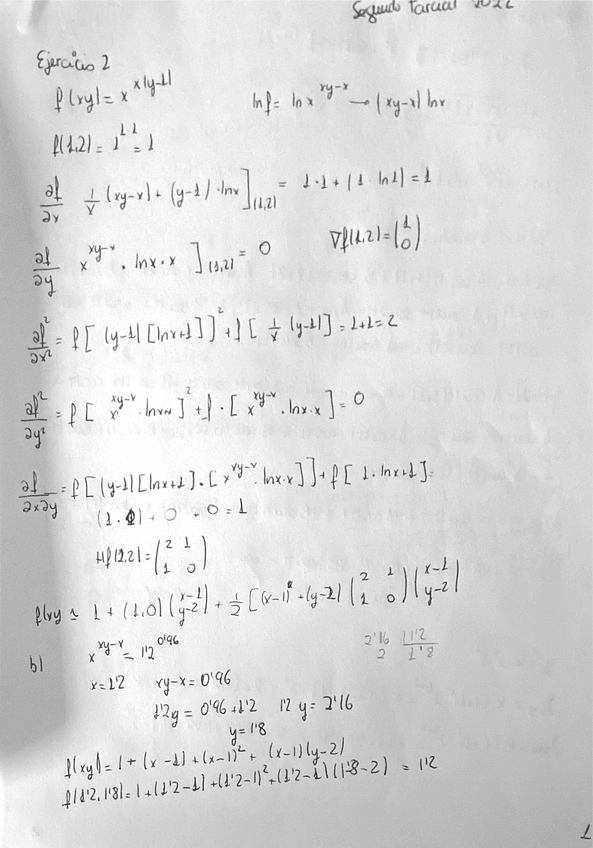 Segundo Parcial 2022
Ejercicio 2
f(xy) = x^{x(y-1)}   lnf = ln x^{xy-x} → (xy-x) lnx
f(1,2) = 1^{1·1} = 1
∂f/∂x   1/x (xy-x) + (y-1) · lnx ]_{(1,2)} = 1·1 + (1·ln1) = 1
∂f/∂y   x^{xy-x} · lnx · x ]_{(1,2)} = 0   ∇f(1,2) = (1 0)
∂f²/∂x² = f[ (y-1)[lnx+1]]² + f[ 1/x (y-1)] = 1+1 = 2
∂f²/∂y² = f[ x^{xy-x} · lnx·x ]² + f · [ x^{xy-x} · lnx·x ] = 0
∂f/∂x∂y = f[(y-1)[lnx+1] · [x^{xy-x} · lnx·x]] + f[ 1·lnx+1] =
(1·1) + 0 · 0 = 1
Hf(1,2) = (2 1 1 0)
f(xy ≃ 1 + (1,0)(x-1 y-2) + 1/2 [(x-1) + (y-2) (2 1 1 0)(x-1 y-2)
b)   x^{xy-x} = 1'2^{0'96}   2'16 | 1'2
x = 1'2   xy-x = 0'96   2   1'8
1'2y = 0'96 + 1'2   1'2 y = 2'16
y = 1'8
f(xy) = 1 + (x-1) + (x-1)² + (x-1)(y-2)
f(1'2, 1'8) = 1 + (1'2-1) + (1'2-1)² + (1'2-1)(1'8-2) = 1'2
1